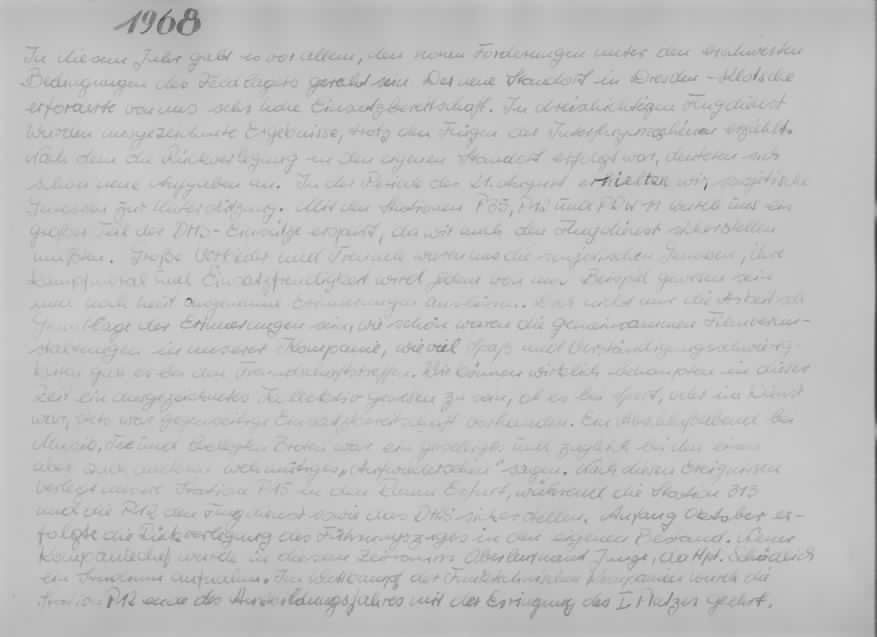 1968
In diesem Jahr galt es vor allem, den hohen Forderungen unter den erschwerten
Bedingungen des Feldlagers gerecht sein. Der neue Standort in Dresden-Klotsche
erforderte von uns sehr hohe Einsatzbereitschaft. Im Flugdienst
wurden ausgezeichnete Ergebnisse, trotz den Flügen der erzielt.
Nach dem die Rückverlegung in den eigenen Standort erfolgt war, deuteten sich
schon neue Aufgaben an. In der Periode des 21. August erhielten wir, sowjetische
Genossen zur Unterstützung. Mit den Stationen P35, P12 und PRW-11 wurde uns ein
großer Teil der DHS-Einsätze erspart, da wir auch den Flugdienst sicherstellen
mußten. Große Vorbilder und Freunde waren uns die sowjetischen Genossen, ihre
Kampfmoral und Einsatzfreudigkeit wird jedem von uns Beispiel gewesen sein
und noch heut angenehme Erinnerungen auslösen. Doch nicht nur die Arbeit soll
Grundlage der Erinnerungen sein, wie schön waren die gemeinsamen Filmveran-
staltungen in unserer Kompanie, wieviel Spaß und Verständigungsschwierig-
keiten gab es bei den Freundschaftstreffen. Wir können wirklich behaupten in dieser
Zeit ein ausgezeichnetes Kollektiv gewesen zu sein, ob es bei Sport, oder im Dienst
war, stets war gegenseitige Einsatzbereitschaft vorhanden. Ein Abschiedsabend bei
Musik, Tee und belegten Broten war ein geselliges und zugleich bei den einen
aber auch anderen wehmütiges „Aufwiedersehen“ sagen. Nach diesen Ereignissen
verlegt unsere Station P15 in den Raum Erfurt, während die Station 313
und die P12 den Flugdienst sowie das DHS sicherstellen. Anfang Oktober er-
folgte die Rückverlegung des Führungszuges in den eigenen Bestand. Neuer
Kompaniechef wurde in diesem Zeitraum Oberleutnant Junge, da Hpt. Schädlich
ein Studium aufnahm. Im Wettkampf der Funktechnischen Kompanien wurde die
Station P12 ende des Ausbildungsjahres mit der Erringung des I. Platzes geehrt.